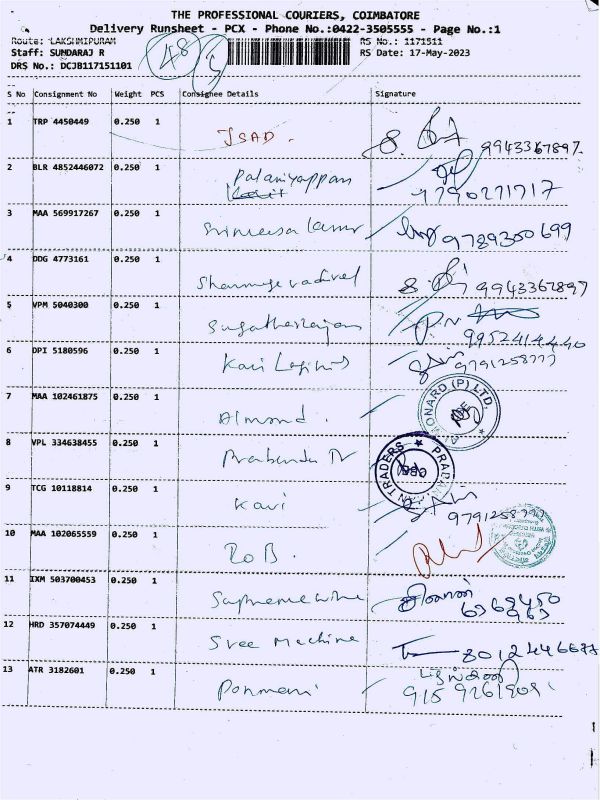 THE PROFESSIONAL COURIERS, COIMBATORE
Delivery Runsheet - PCX - Phone No.:0422-3505555 - Page No.:1
Route: LAKSHMIPURAM RS No.: 1171511
Staff: SUNDARAJ R RS Date: 17-May-2023
DRS No.: DCJB117151101
48
S No Consignment No Weight PCS Consignee Details Signature
1 TRP 4450449 0.250 1 JSAD. 9943367897
2 BLR 4852446072 0.250 1 Palaniyappan 9790271717
3 MAA 569917267 0.250 1 9789300699
4 DDG 4773161 0.250 1 Shanmugavadivel 9943367897
5 VPM 5040300 0.250 1 9952414440
6 DPI 5180596 0.250 1 Kavi 9791258777
7 MAA 102461875 0.250 1 Almond. (P) LTD.
8 VPL 334638455 0.250 1 TRADERS
9 TCG 10118814 0.250 1 Kavi
10 MAA 102065559 0.250 1 ROB.
11 IXM 503700453 0.250 1 Supreme
12 HRD 357074449 0.250 1 Sree Machine 8012446677
13 ATR 3182601 0.250 1 Ponmani